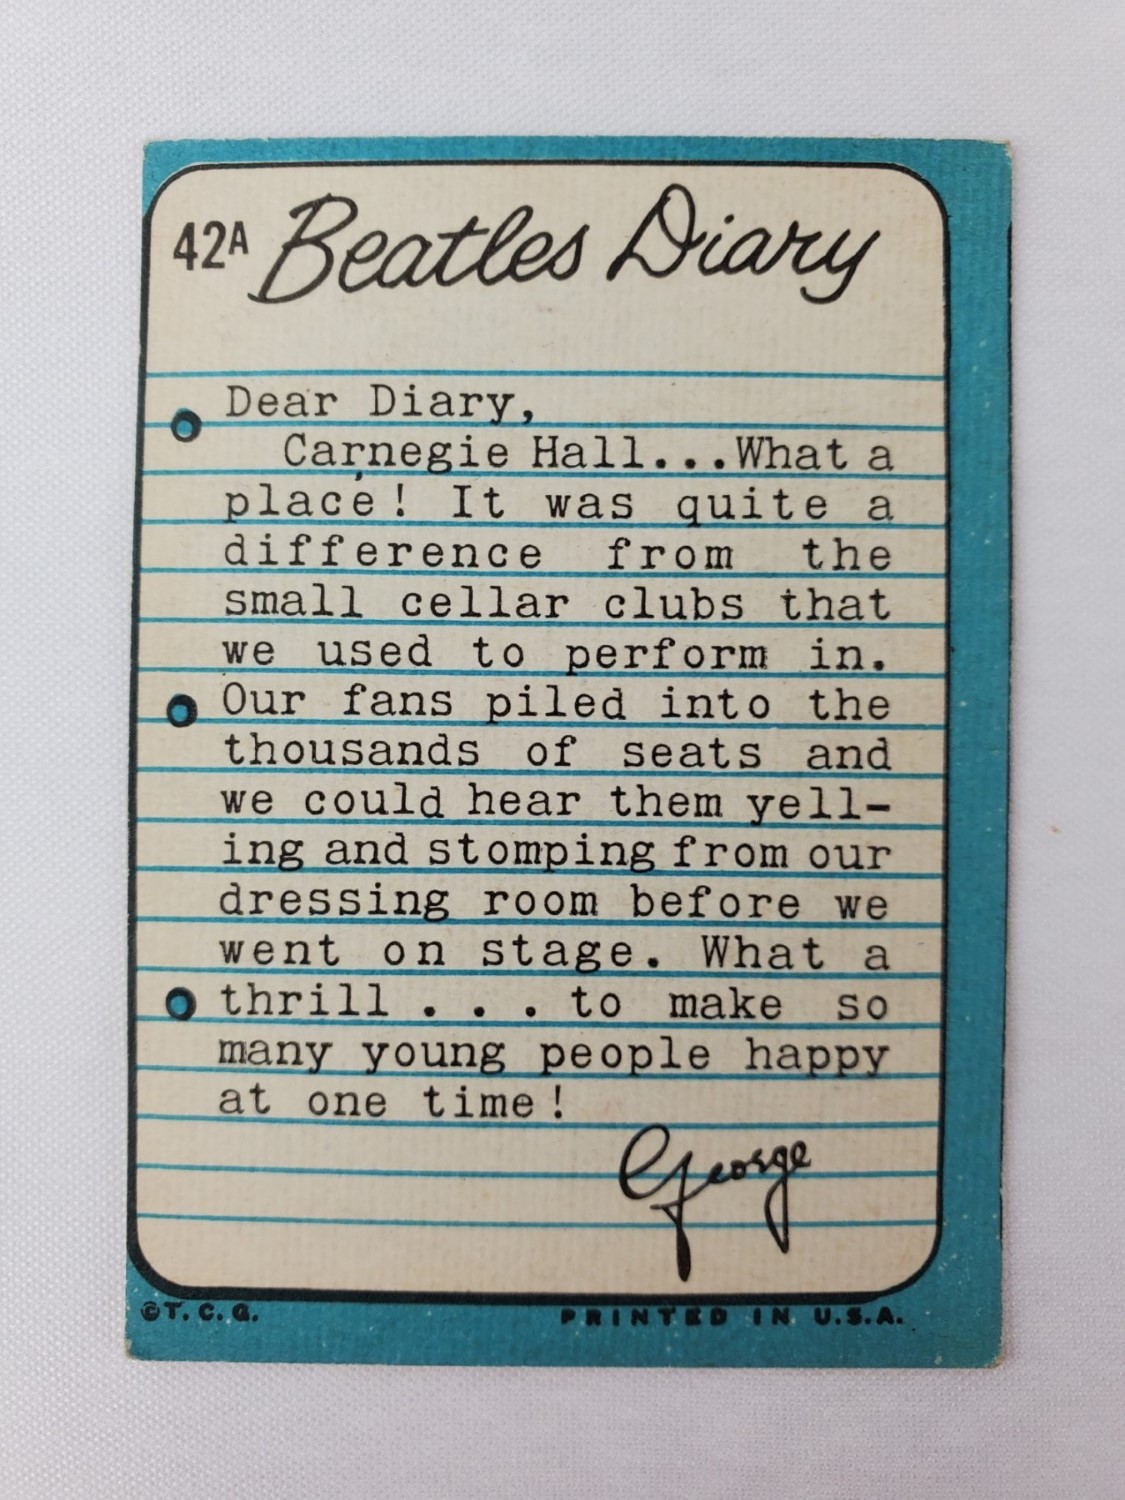 42A Beatles Diary
Dear Diary,
Carnegie Hall...What a
place! It was quite a
difference from the
small cellar clubs that
we used to perform in.
Our fans piled into the
thousands of seats and
we could hear them yell-
ing and stomping from our
dressing room before we
went on stage. What a
thrill . . . to make so
many young people happy
at one time!
George
©T.C.G. PRINTED IN U.S.A.